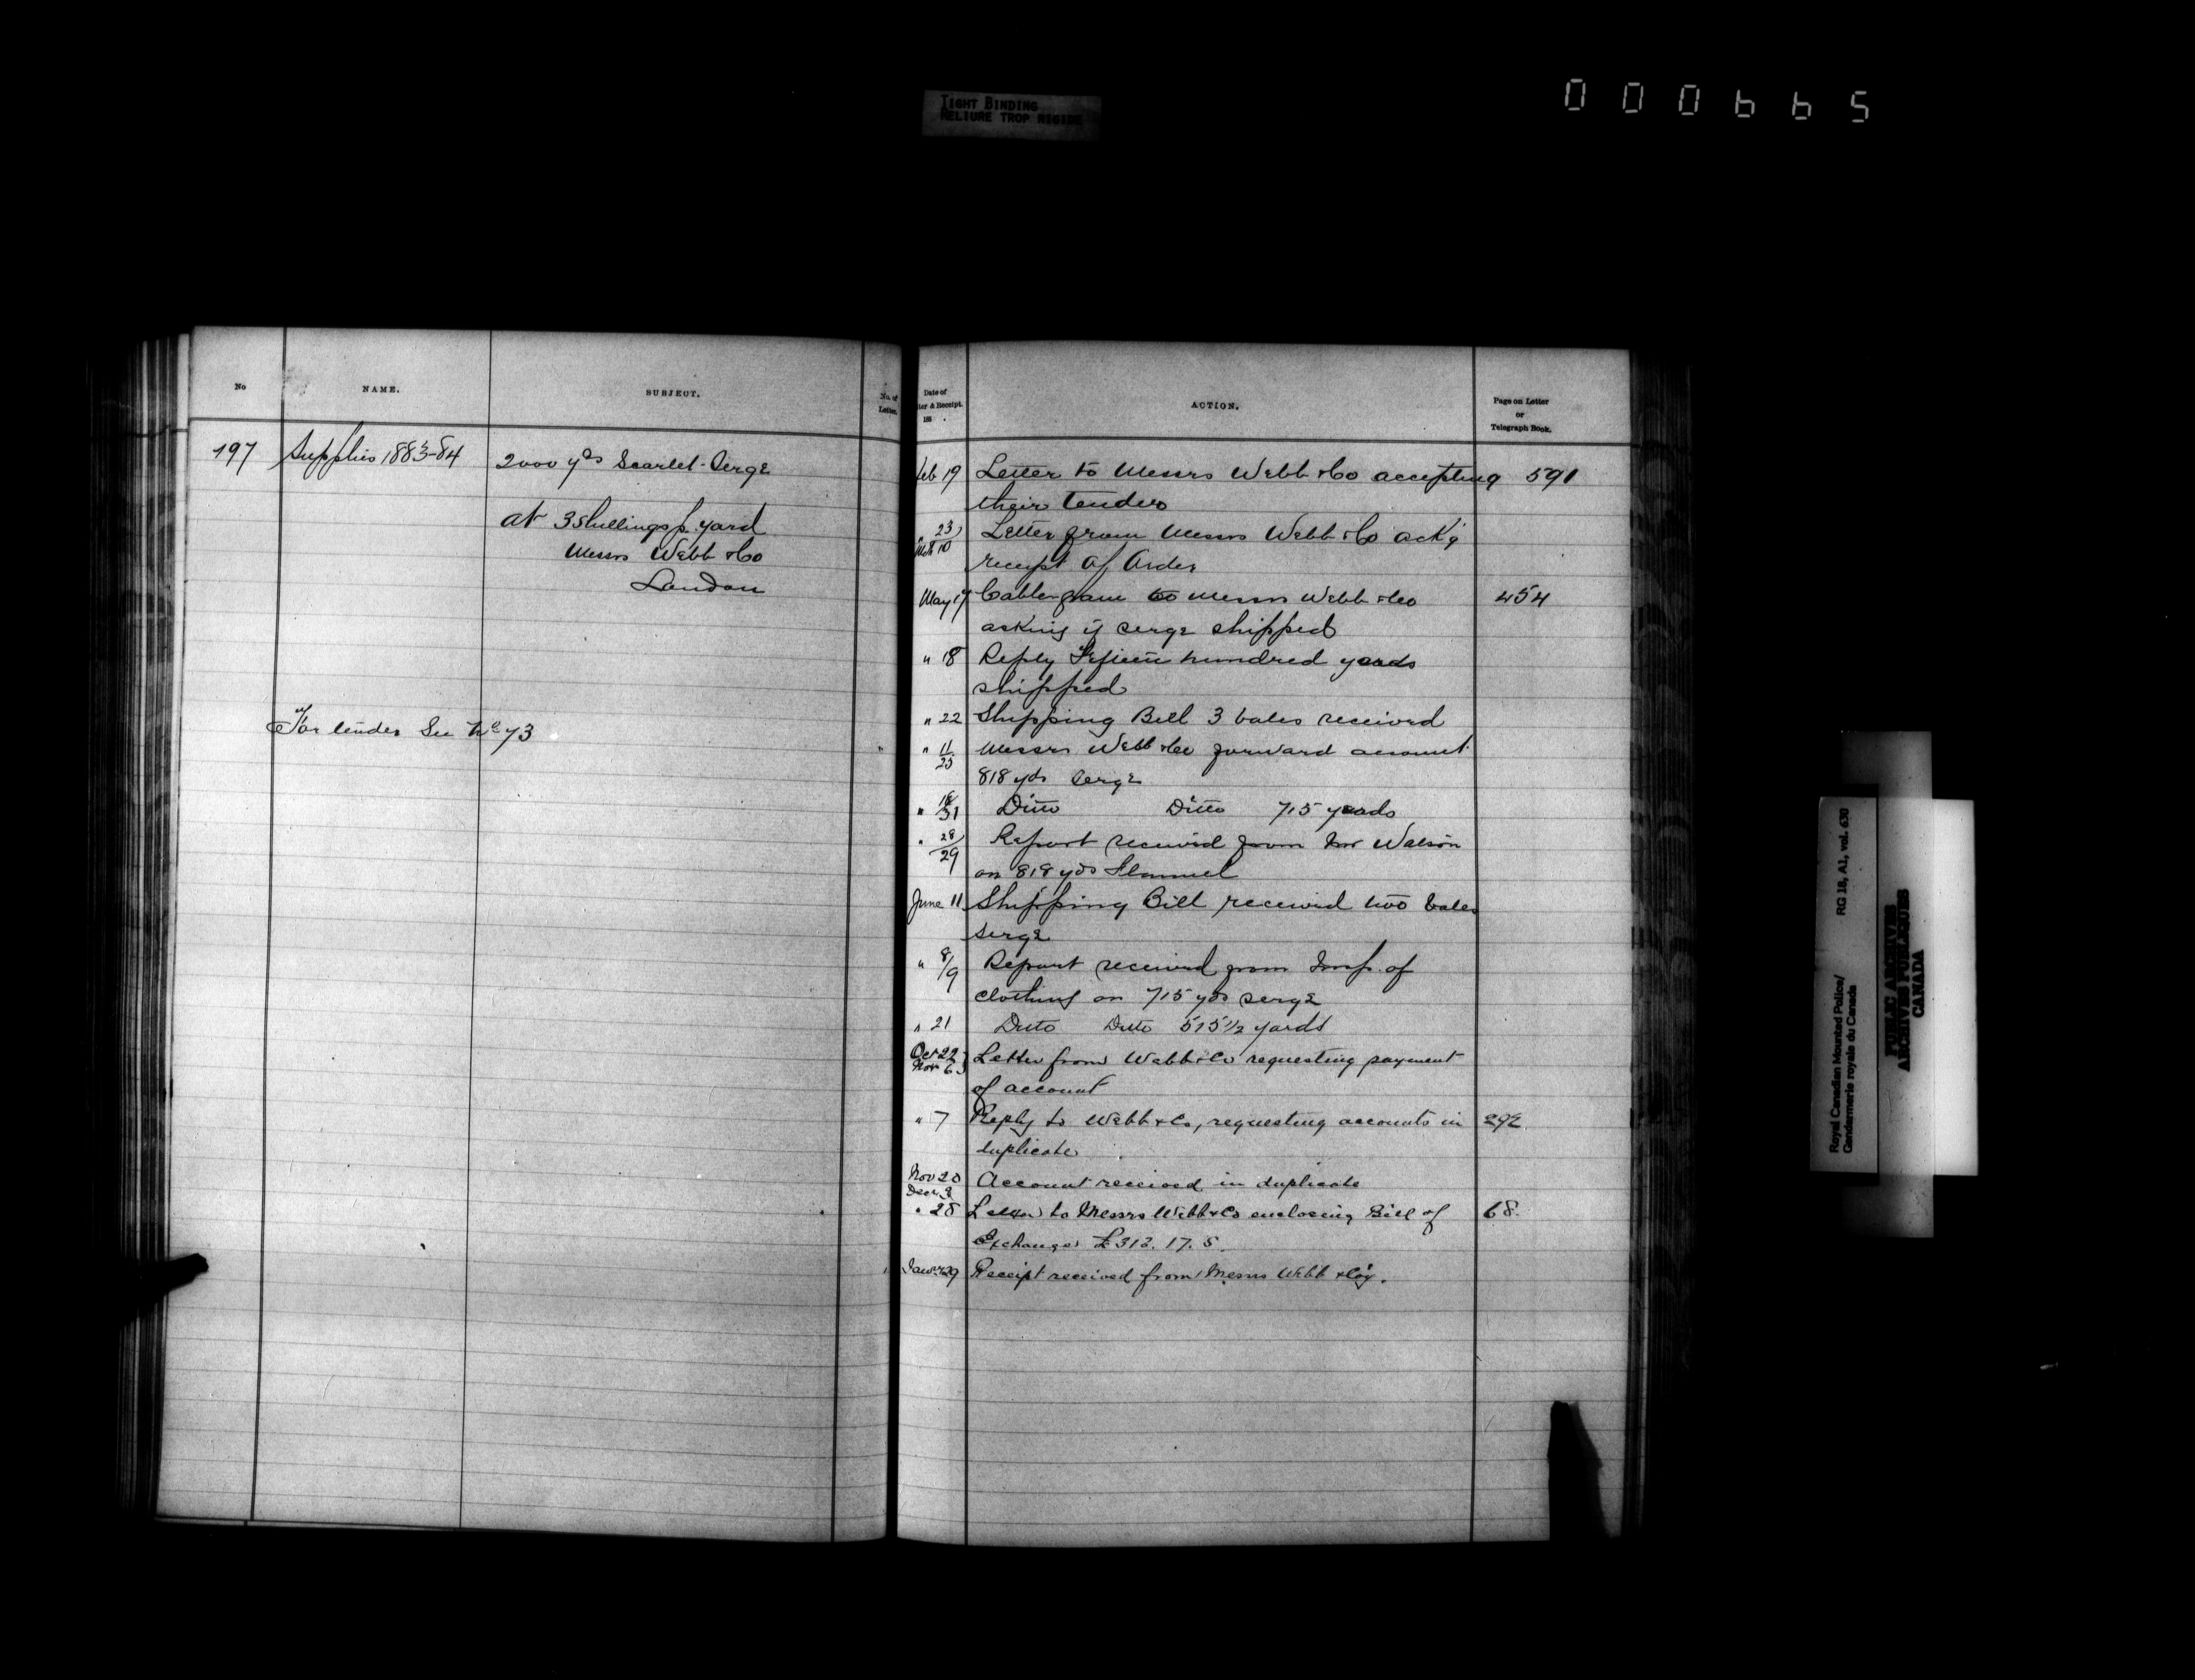 TIGHT BINDING
RELIURE TROP RIGIDE
000665
No
NAME.
SUBJECT.
No. of
Letter.
197
Supplies 1883-84
2000 yds Scarlet Serge
at 3 shillings p. yard
Messrs Webb & Co
London
For tender See No 73
Date of
ter & Receipt.
188 .
ACTION.
Page on Letter
or
Telegraph Book.
Feb 19 Letter to Messrs Webb & Co accepting 591
their tender
" 23 Letter from Messrs Webb & Co ack'g
Mch 10 receipt of Order
May 17 Cablegram to Messrs Webb & Co 454
asking if serge shipped
" 18 Reply Fifteen hundred yards
shipped
" 22 Shipping Bill 3 bales received
" 11/25 Messrs Webb & Co forward account
818 yds Serge
" 18/31 Ditto Ditto 715 yards
" 28/29 Report received from Mr Watson
on 818 yds Flannel
June 11 Shipping Bill received two bales
serge
" 8/9 Report received from Insp. of
clothing on 715 yds serge
" 21 Ditto Ditto 515 1/2 yards
Oct 22 Letter from Webb & Co requesting payment
Nov 6 of account
" 7 Reply to Webb & Co, requesting accounts in 292
duplicate
Nov 20 Account received in duplicate
Decr. 9
" 28 Letter to Messrs Webb & Co enclosing Bill of 68.
Exchange £312. 17. 5.
Jany 29 Receipt received from Messrs Webb & Coy.
Royal Canadian Mounted Police/ RG 18, A1, vol. 630
Gendarmerie royale du Canada
PUBLIC ARCHIVES
ARCHIVES PUBLIQUES
CANADA